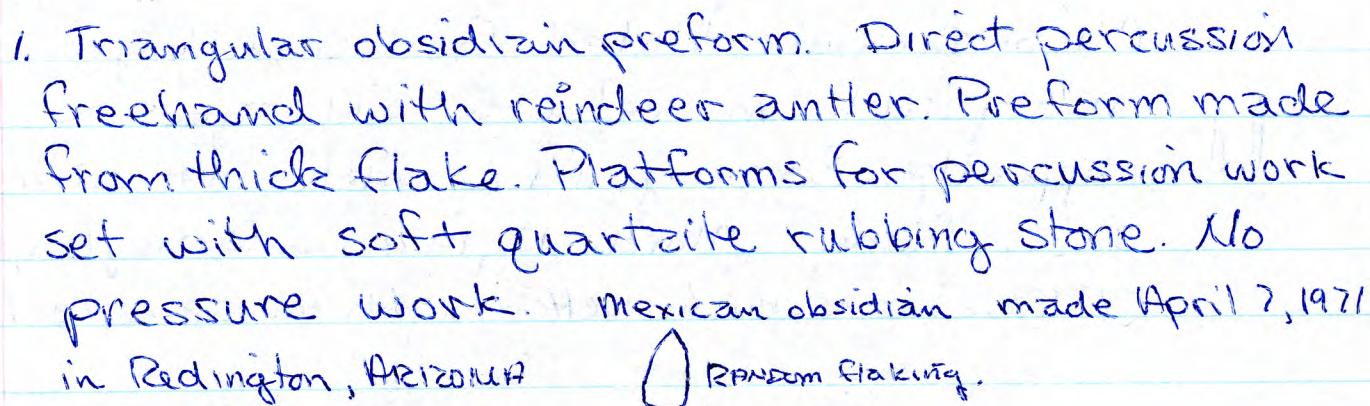 1. Triangular obsidian preform. Direct percussion
freehand with reindeer antler. Preform made
from thick flake. Platforms for percussion work
set with soft quartzite rubbing stone. No
pressure work. Mexican obsidian made April ?, 1971
in Redington, ARIZONA RANDOM flaking.